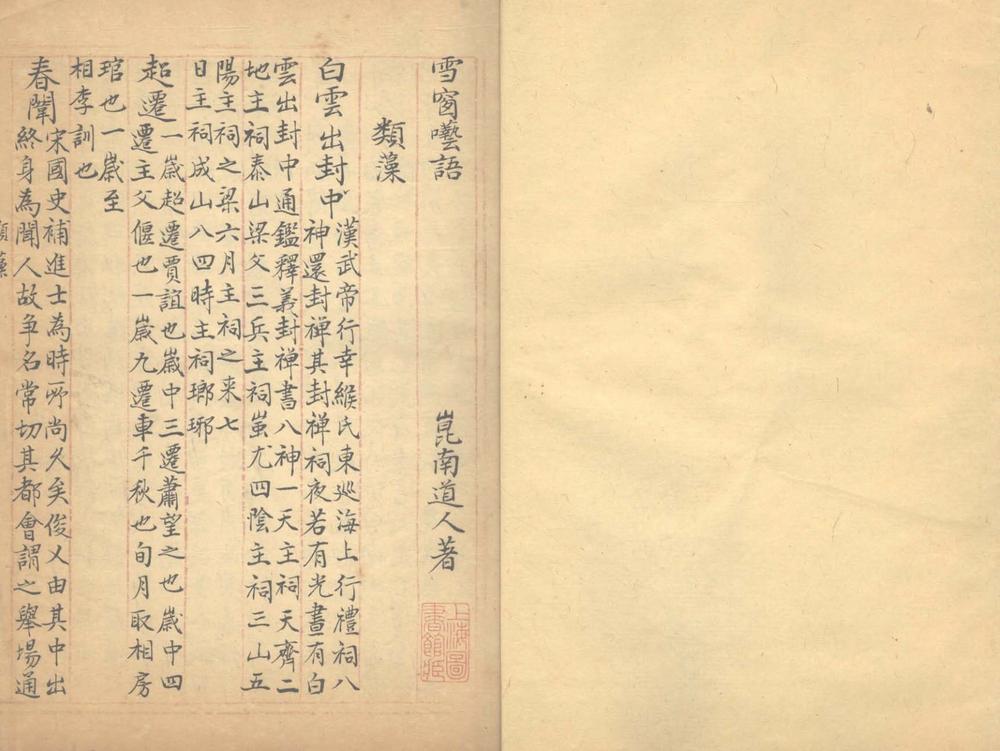 雪窗囈語 崑南道人著
上海圖
書館藏
類藻
白雲出封中
漢武帝行幸緱氏東巡海上行禮祠八
神還封禅其封禅祠夜若有光晝有白
雲出封中通鑑釋義封禅書八神一天主祠天齊二
地主祠泰山梁父三兵主祠蚩尤四陰主祠三山五
陽主祠之梁六月主祠之来七
日主祠成山八四時主祠瑯琊
超遷
一嵗超遷賈誼也嵗中三遷蕭望之也嵗中四
遷主父偃也一嵗九遷車千秋也旬月取相房
琯也一嵗至
相李訓也
春闈
宋國史補進士為時所尚久矣俊乂由其中出
終身為聞人故争名常切其都會謂之舉場通
類藻